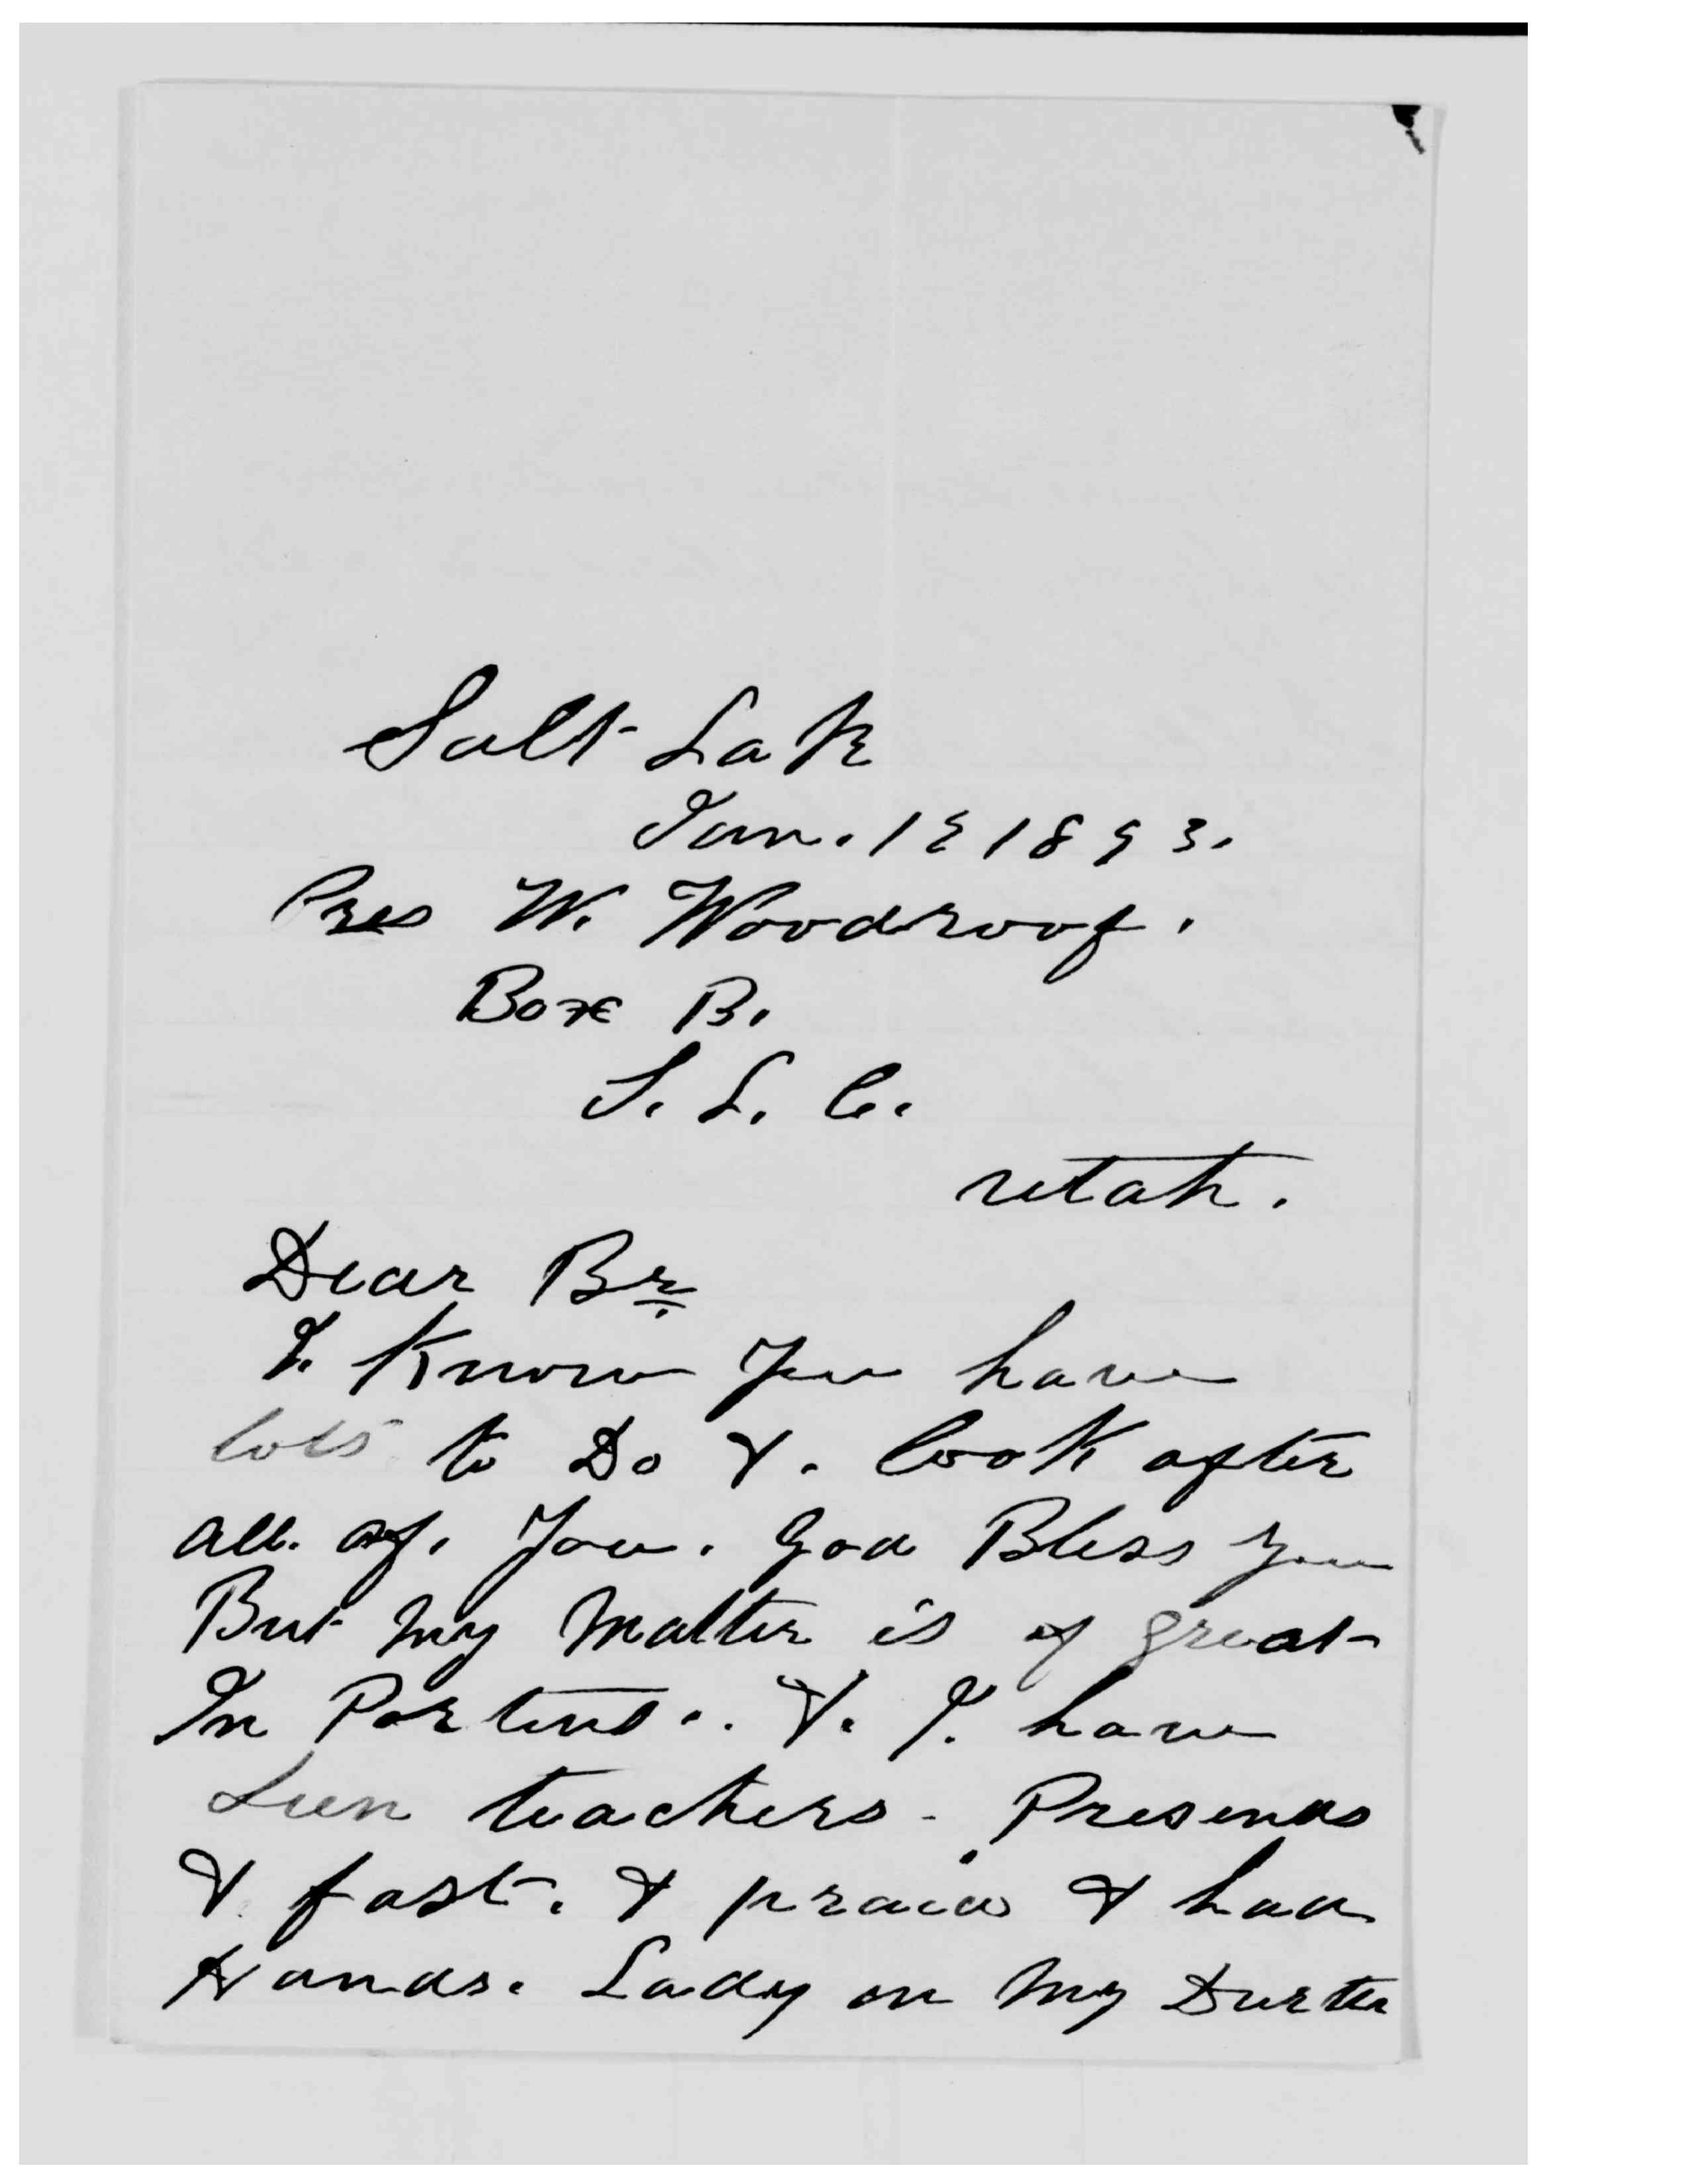 Salt Lak
Jan. 19 1893.
Pres W. Woodroof.
Box B.
S. L. C.
utah.
Dear Br.
I. Know You have
lots to Do &. look after
all. of. You. God Bless you
But my Matter is of great
In Portent.. &. I. have
Seen teachers - Presends
& fast. & praid & had
Hands. Lady on my Durter